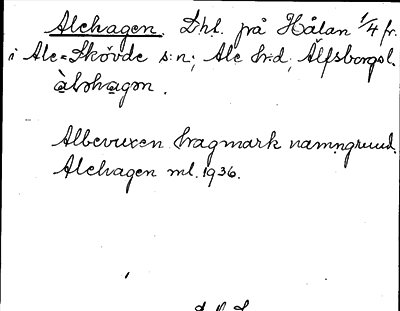 Alehagen. Dhl. på Hålan 1/4 fr.
i Ale=Skövde s:n; Ale h:d; Älfsborgs l.
àləhagən.
Albevuxen hagmark namngrund.
Alehagen ml. 1936.